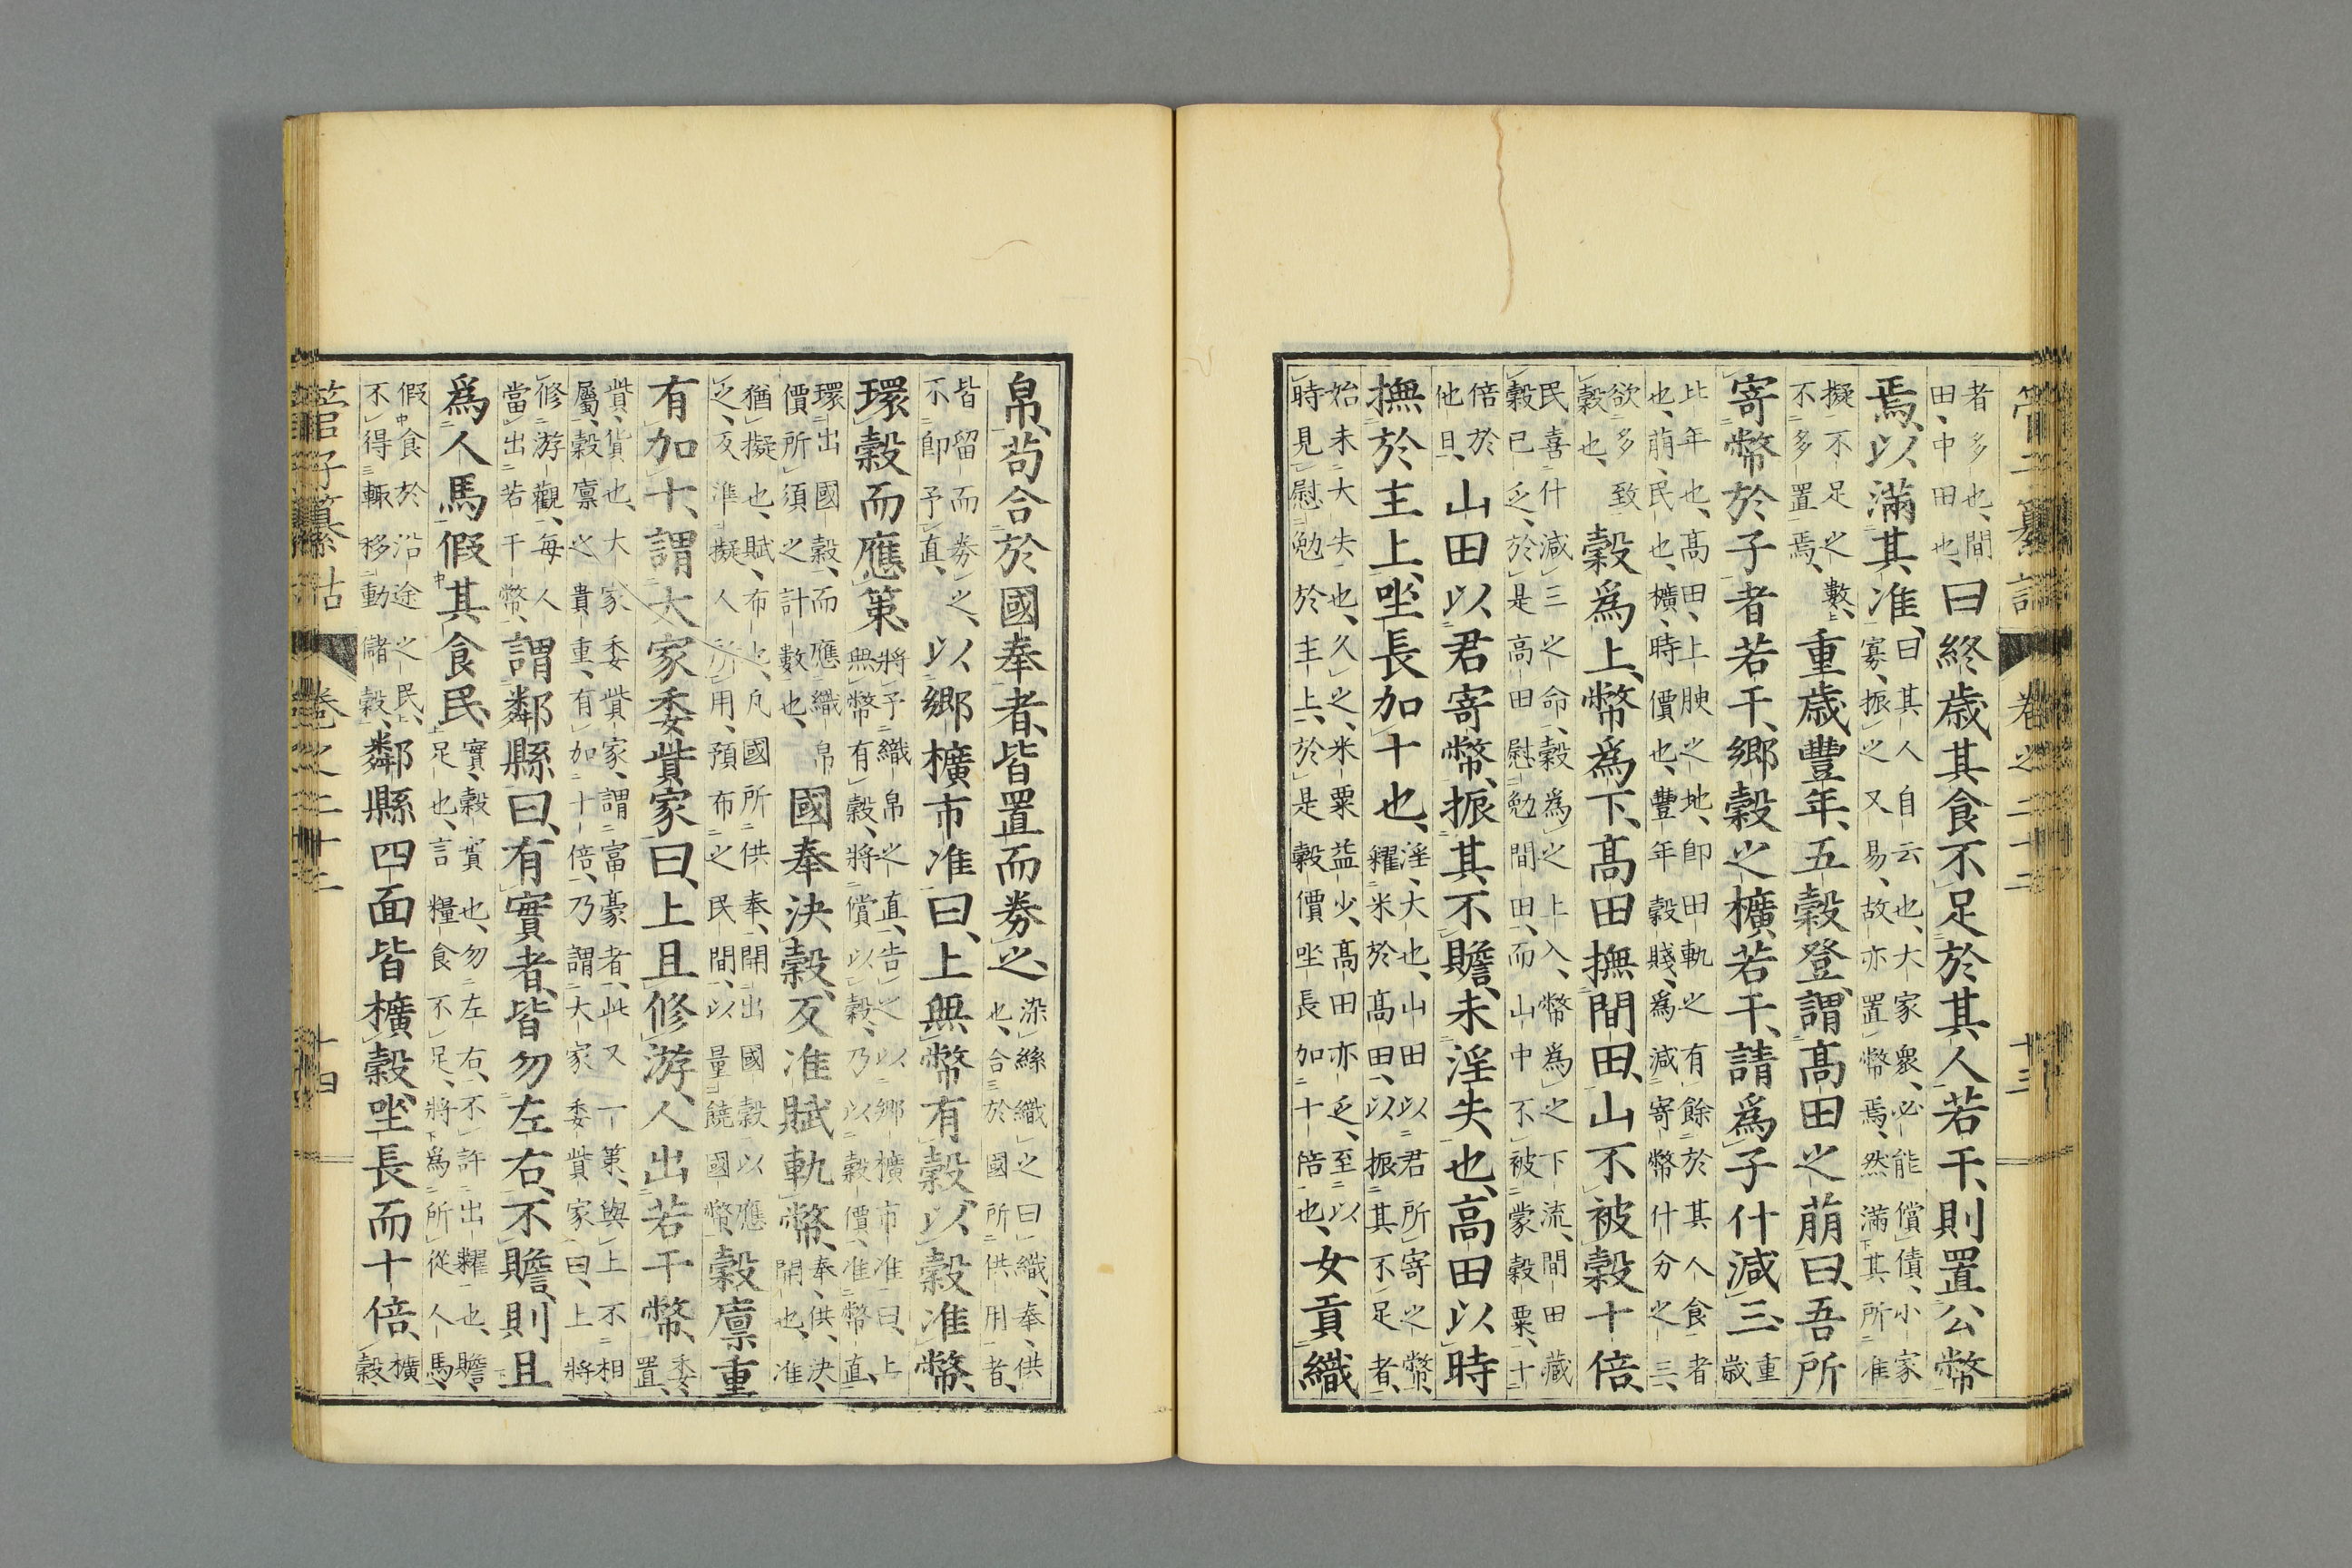 管子纂詁 卷之二十二 十三
者多也、間
田、中田也、
曰終歲其食不足於其人若干、則置公幣
焉、以滿其准、
曰其人自云也、大家衆、必能償債、小家
寡、振之又易、故亦置幣焉、然滿其所准
擬不足之數、
不多置焉、
重歲豐年、五穀登、謂高田之萠曰、吾所
寄幣於子者若干、鄉穀之櫎若干、請爲子什減三、
重
歲
比年也、高田、上腴之地、即田軌之有餘於其人食者
也、萠、民也、櫎、時價也、豐年穀賤、爲減寄幣什分之三、
欲多致
穀也、
穀爲上、幣爲下、高田撫間田、山不被穀十倍、
民喜什減三之命、穀爲之上入、幣爲之下流、間田藏
穀已乏、於是高田慰勉間田、而山中不被蒙穀粟、十
倍於
他日、
山田以君寄幣、振其不贍、未淫失也、高田以時
撫於主上、坐長加十也、
淫、大也、山田以君所寄之幣、
糴米於高田、以振其不足者、
始未大失也、久之、米粟益少、高田亦乏、至以
時見慰勉於主上、於是穀價坐長加十倍也、
女貢織
帛、苟合於國奉者、皆置而券之、
染絲織之曰織、奉、供
也、合於國所供用者、
皆留而券之、
不即予直、
以鄉櫎市准曰、上無幣、有穀、以穀准幣、
環穀而應筴、
將予織帛之直、告之以鄉櫎市准曰、上
無幣有穀、將償以穀、乃以穀價、准幣直、
環出國穀、而應織帛
價所須之計數也、
國奉決穀、反准賦軌幣、
奉、供、決、
開也、准
猶擬也、賦、布也、凡國所供奉、開出國穀以應
乏、反準擬人所用、預布之民間、以量饒國幣、
穀廩重
有加十、謂大家委貲家曰、上且修游、人出若干幣、
委、
置、
貲、貨也、大家委貲家、謂富豪者、此又一筴、與上不相
屬、穀廩之貴重、有加十倍、乃謂大家委貲家曰、上將
修游觀、每人
當出若干幣、
謂鄰縣曰、有實者、皆勿左右、不贍、則且
爲人馬假其食民、
實、穀實也、勿左右、不許出糶也、贍、
足也、言糧食不足、將爲所從人馬、
假食於沿途之民、
不得輒移動儲穀、
鄰縣四面皆櫎、穀坐長而十倍、
櫎
穀、
管子纂詁 卷之二十二 十四